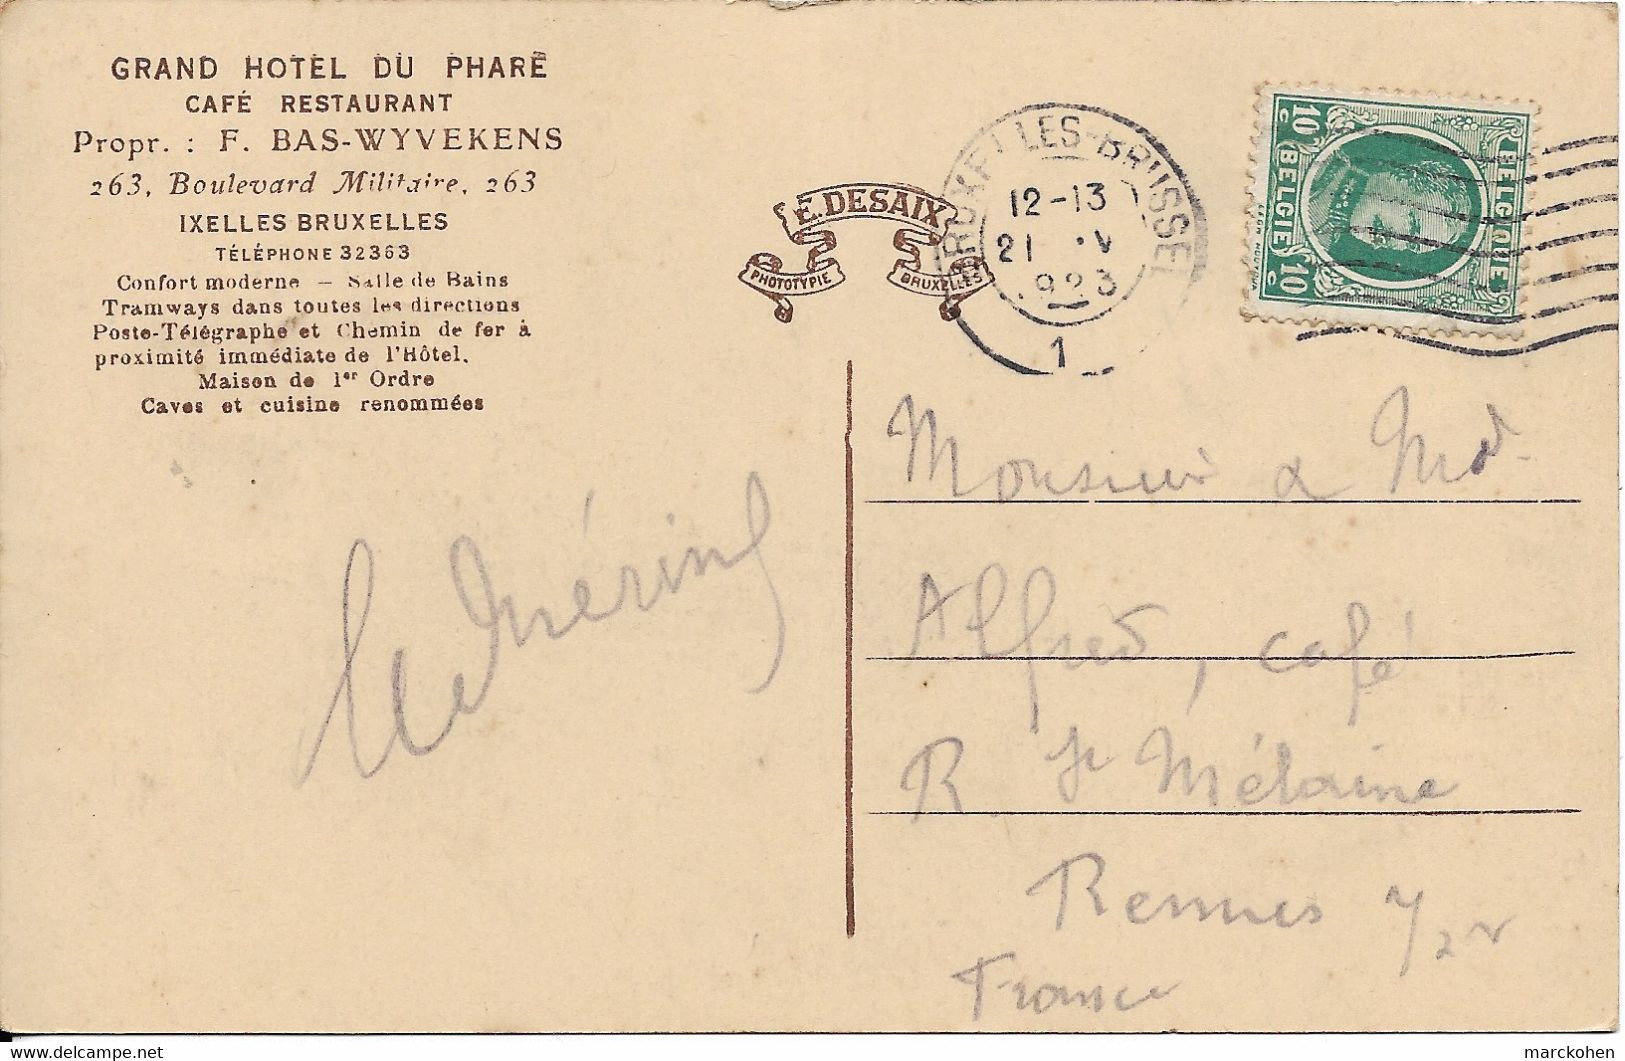 GRAND HOTEL DU PHARE
CAFÉ RESTAURANT
Propr. : F. BAS-WYVEKENS
263, Boulevard Militaire, 263
IXELLES BRUXELLES
TÉLÉPHONE 32363
Confort moderne — Salle de Bains
Tramways dans toutes les directions
Poste-Télégraphe et Chemin de fer à
proximité immédiate de l'Hôtel.
Maison de 1er Ordre
Caves et cuisine renommées
E. DESAIX
PHOTOTYPIE BRUXELLES
BRUXELLES-BRUSSEL
12-13
21 V
1923
1
10 c BELGIE 10 c
BELGIQUE
Monsieur & Md
Alfred, café
R St Mélaine
Rennes
France
marckohen